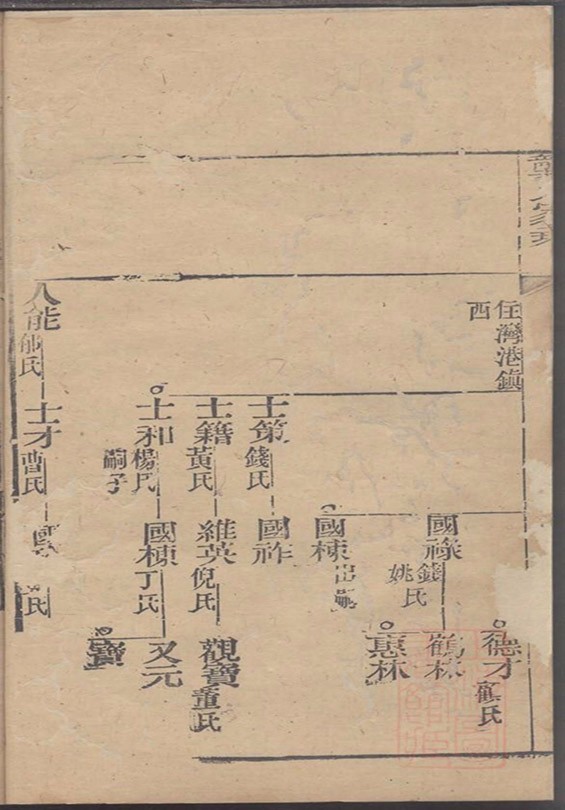 住灣港鎮
西
德才 顧氏
國祿 錢氏
姚氏
鶴林
惠林
國棟 出嗣
士策 錢氏
國祚
士籍 黃氏
維英 倪氏
觀寶 董氏
士和 楊氏
嗣子
國棟 丁氏
又元
寶
能 郁氏
士才 曹氏
國
氏